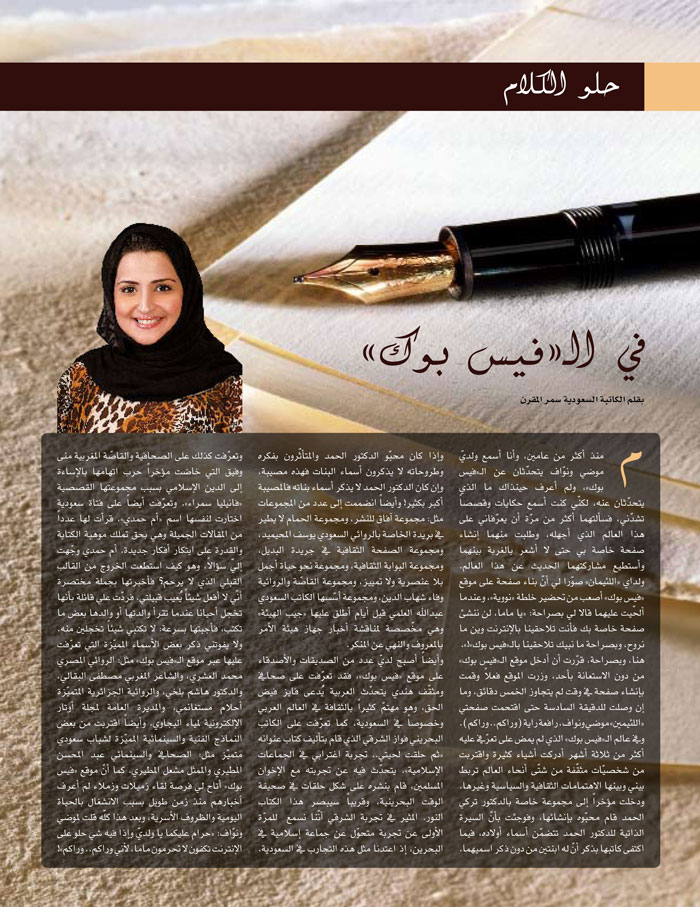 حلو الكلام
في الـ«فيس بوك»
بقلم الكاتبة السعودية سمر المقرن
منذ أكثر من عامين، وأنا أسمع ولديّ
موضي ونوّاف يتحدّثان عن الـ«فيس
بوك»، ولم أعرف حينذاك ما الذي
يتحدّثان عنه، لكنّي كنت أسمع حكايات وقصصاً
تشدّني، فسألتهما أكثر من مرّة أن يعرّفاني على
هذا العالم الذي أجهله، وطلبت منهما إنشاء
صفحة خاصة بي حتى لا أشعر بالغربة بينهما
وأستطيع مشاركتهما الحديث عن هذا العالم.
ولداي «اللئيمان» صوّرا لي أنّ بناء صفحة على موقع
«فيس بوك»، أصعب من تحضير خلطة «نووية»، وعندما
ألحيت عليهما قالا لي بصراحة: «يا ماما، لن ننشئ
صفحة خاصة بك فأنت تلاحقينا بالإنترنت وين ما
نروح، وبصراحة ما نبيك تلاحقينا بالـ«فيس بوك»!».
هنا، وبصراحة، قرّرت أن أدخل موقع الـ«فيس بوك»
من دون الاستعانة بأحد، وزرت الموقع فعلاً وقمت
بإنشاء صفحة في وقت لم يتجاوز الخمس دقائق، وما
إن وصلت للدقيقة السادسة حتى اقتحمت صفحتي
«اللئيمين» موضي ونواف، رافعة راية (وراكم.. وراكم).
وفي عالم الـ«فيس بوك» الذي لم يمض على تعرّفي عليه
أكثر من ثلاثة أشهر أدركت أشياء كثيرة واقتربت
من شخصيّات مثقّفة من شتّى أنحاء العالم تربط
بيني وبينها الاهتمامات الثقافية والسياسية وغيرها.
ودخلت مؤخراً إلى مجموعة خاصة بالدكتور تركي
الحمد قام محبّوه بإنشائها، وفوجئت بأنّ السيرة
الذاتية للدكتور الحمد تتضمّن أسماء أولاده، فيما
اكتفى كاتبها بذكر أنّ له ابنتين من دون ذكر اسميهما.
وإذا كان محبّو الدكتور الحمد والمتأثّرون بفكره
وطروحاته لا يذكرون أسماء البنات فهذه مصيبة،
وإن كان الدكتور الحمد لا يذكر أسماء بناته فالمصيبة
أكبر بكثير! وأيضاً انضممت إلى عدد من المجموعات
مثل: مجموعة آفاق للنشر، ومجموعة الحمام لا يطير
في بريدة الخاصة بالروائي السعودي يوسف المحيميد،
ومجموعة الصفحة الثقافية في جريدة البديل،
ومجموعة البوابة الثقافية، ومجموعة نحو حياة أجمل
بلا عنصرية ولا تمييز، ومجموعة القاصّة والروائية
وفاء شهاب الدين، ومجموعة أسّسها الكاتب السعودي
عبدالله العلمي قبل أيام أطلق عليها «جيب الهيئة»
وهي مخصّصة لمناقشة أخبار جهاز هيئة الأمر
بالمعروف والنهي عن المنكر.
وأيضاً أصبح لديّ عدد من الصديقات والأصدقاء
على موقع «فيس بوك»، فقد تعرّفت على صحافي
ومثقّف هندي يتحدّث العربية يُدعى فايز فيض
الحق، وهو مهتمّ كثيراً بالثقافة في العالم العربي
وخصوصاً في السعودية. كما تعرّفت على الكاتب
البحريني فواز الشرقي الذي قام بتأليف كتاب عنوانه
«ثم حلقت لحيتي.. تجربة اغترابي في الجماعات
الإسلامية»، يتحدث فيه عن تجربته مع الإخوان
المسلمين، قام بنشره على شكل حلقات في صحيفة
الوقت البحرينية، وقريباً سيبصر هذا الكتاب
النور. المثير في تجربة الشرقي أننا نسمع للمرّة
الأولى عن تجربة متحوّل عن جماعة إسلامية في
البحرين، إذ اعتدنا مثل هذه التجارب في السعودية.
وتعرّفت كذلك على الصحافية والقاصّة المغربية منى
وفيق التي خاضت مؤخراً حرب اتهامها بالإساءة
إلى الدين الإسلامي بسبب مجموعتها القصصية
«فانيليا سمراء»، وتعرّفت أيضاً على فتاة سعودية
اختارت لنفسها اسم «أم حمدي»، قرأت لها عدداً
من المقالات الجميلة وهي بحق تملك موهبة الكتابة
والقدرة على ابتكار أفكار جديدة. أم حمدي وجّهت
إليّ سؤالاً، وهو كيف استطعت الخروج من القالب
القبلي الذي لا يرحم؟ فأخبرتها بجملة مختصرة
أنّي لا أفعل شيئاً يُعيب قبيلتي، فردّت علي قائلة بأنها
تخجل أحياناً عندما تقرأ والدتها أو والدها بعض ما
تكتب، فأجبتها بسرعة: لا تكتبي شيئاً تخجلين منه.
ولا يفوتني ذكر بعض الأسماء المميّزة التي تعرّفت
عليها عبر موقع الـ«فيس بوك» مثل: الروائي المصري
محمد العشري، والشاعر المغربي مصطفى البقالي،
والدكتور هاشم بلخي، والروائية الجزائرية المتميّزة
أحلام مستغانمي، والمديرة العامة لمجلة أوتار
الإلكترونية لمياء اليحاوي. وأيضاً اقتربت من بعض
النماذج الفنية والسينمائية المميّزة لشباب سعودي
متميّز مثل: الصحافي والسينمائي عبد المحسن
المطيري والممثل مشعل المطيري. كما أنّ موقع «فيس
بوك»، أتاح لي فرصة لقاء زميلات وزملاء لم أعرف
أخبارهم منذ زمن طويل بسبب الانشغال بالحياة
اليومية والظروف الأسرية، وبعد هذا كله قلت لموضي
ونوّاف: «حرام عليكما يا ولديّ وإذا فيه شي حلو على
الإنترنت تكفون لا تحرمون ماما، لأني وراكم.. وراكم»!